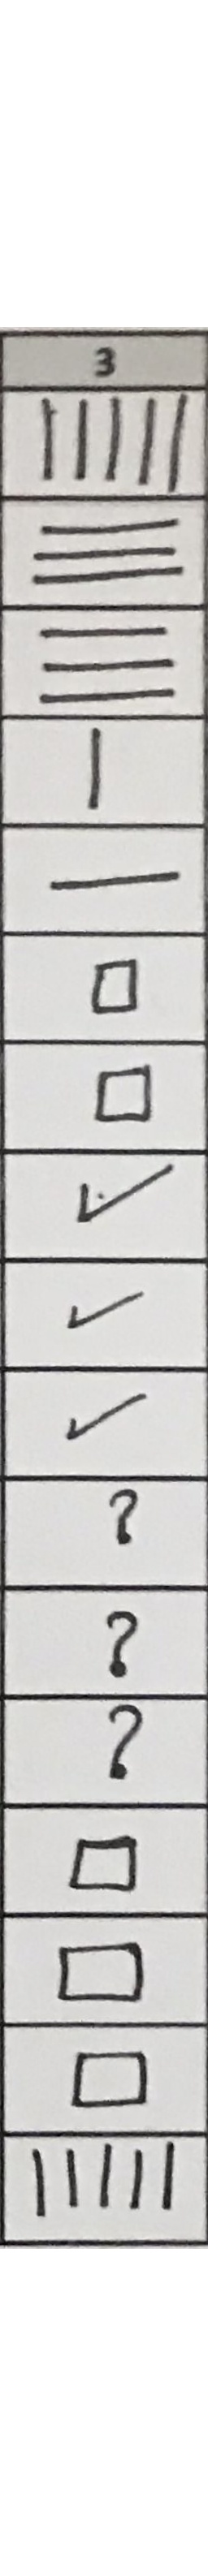 3
|||||
☰
☰
|
—
□
□
✓
✓
✓
?
?
?
□
□
□
|||||